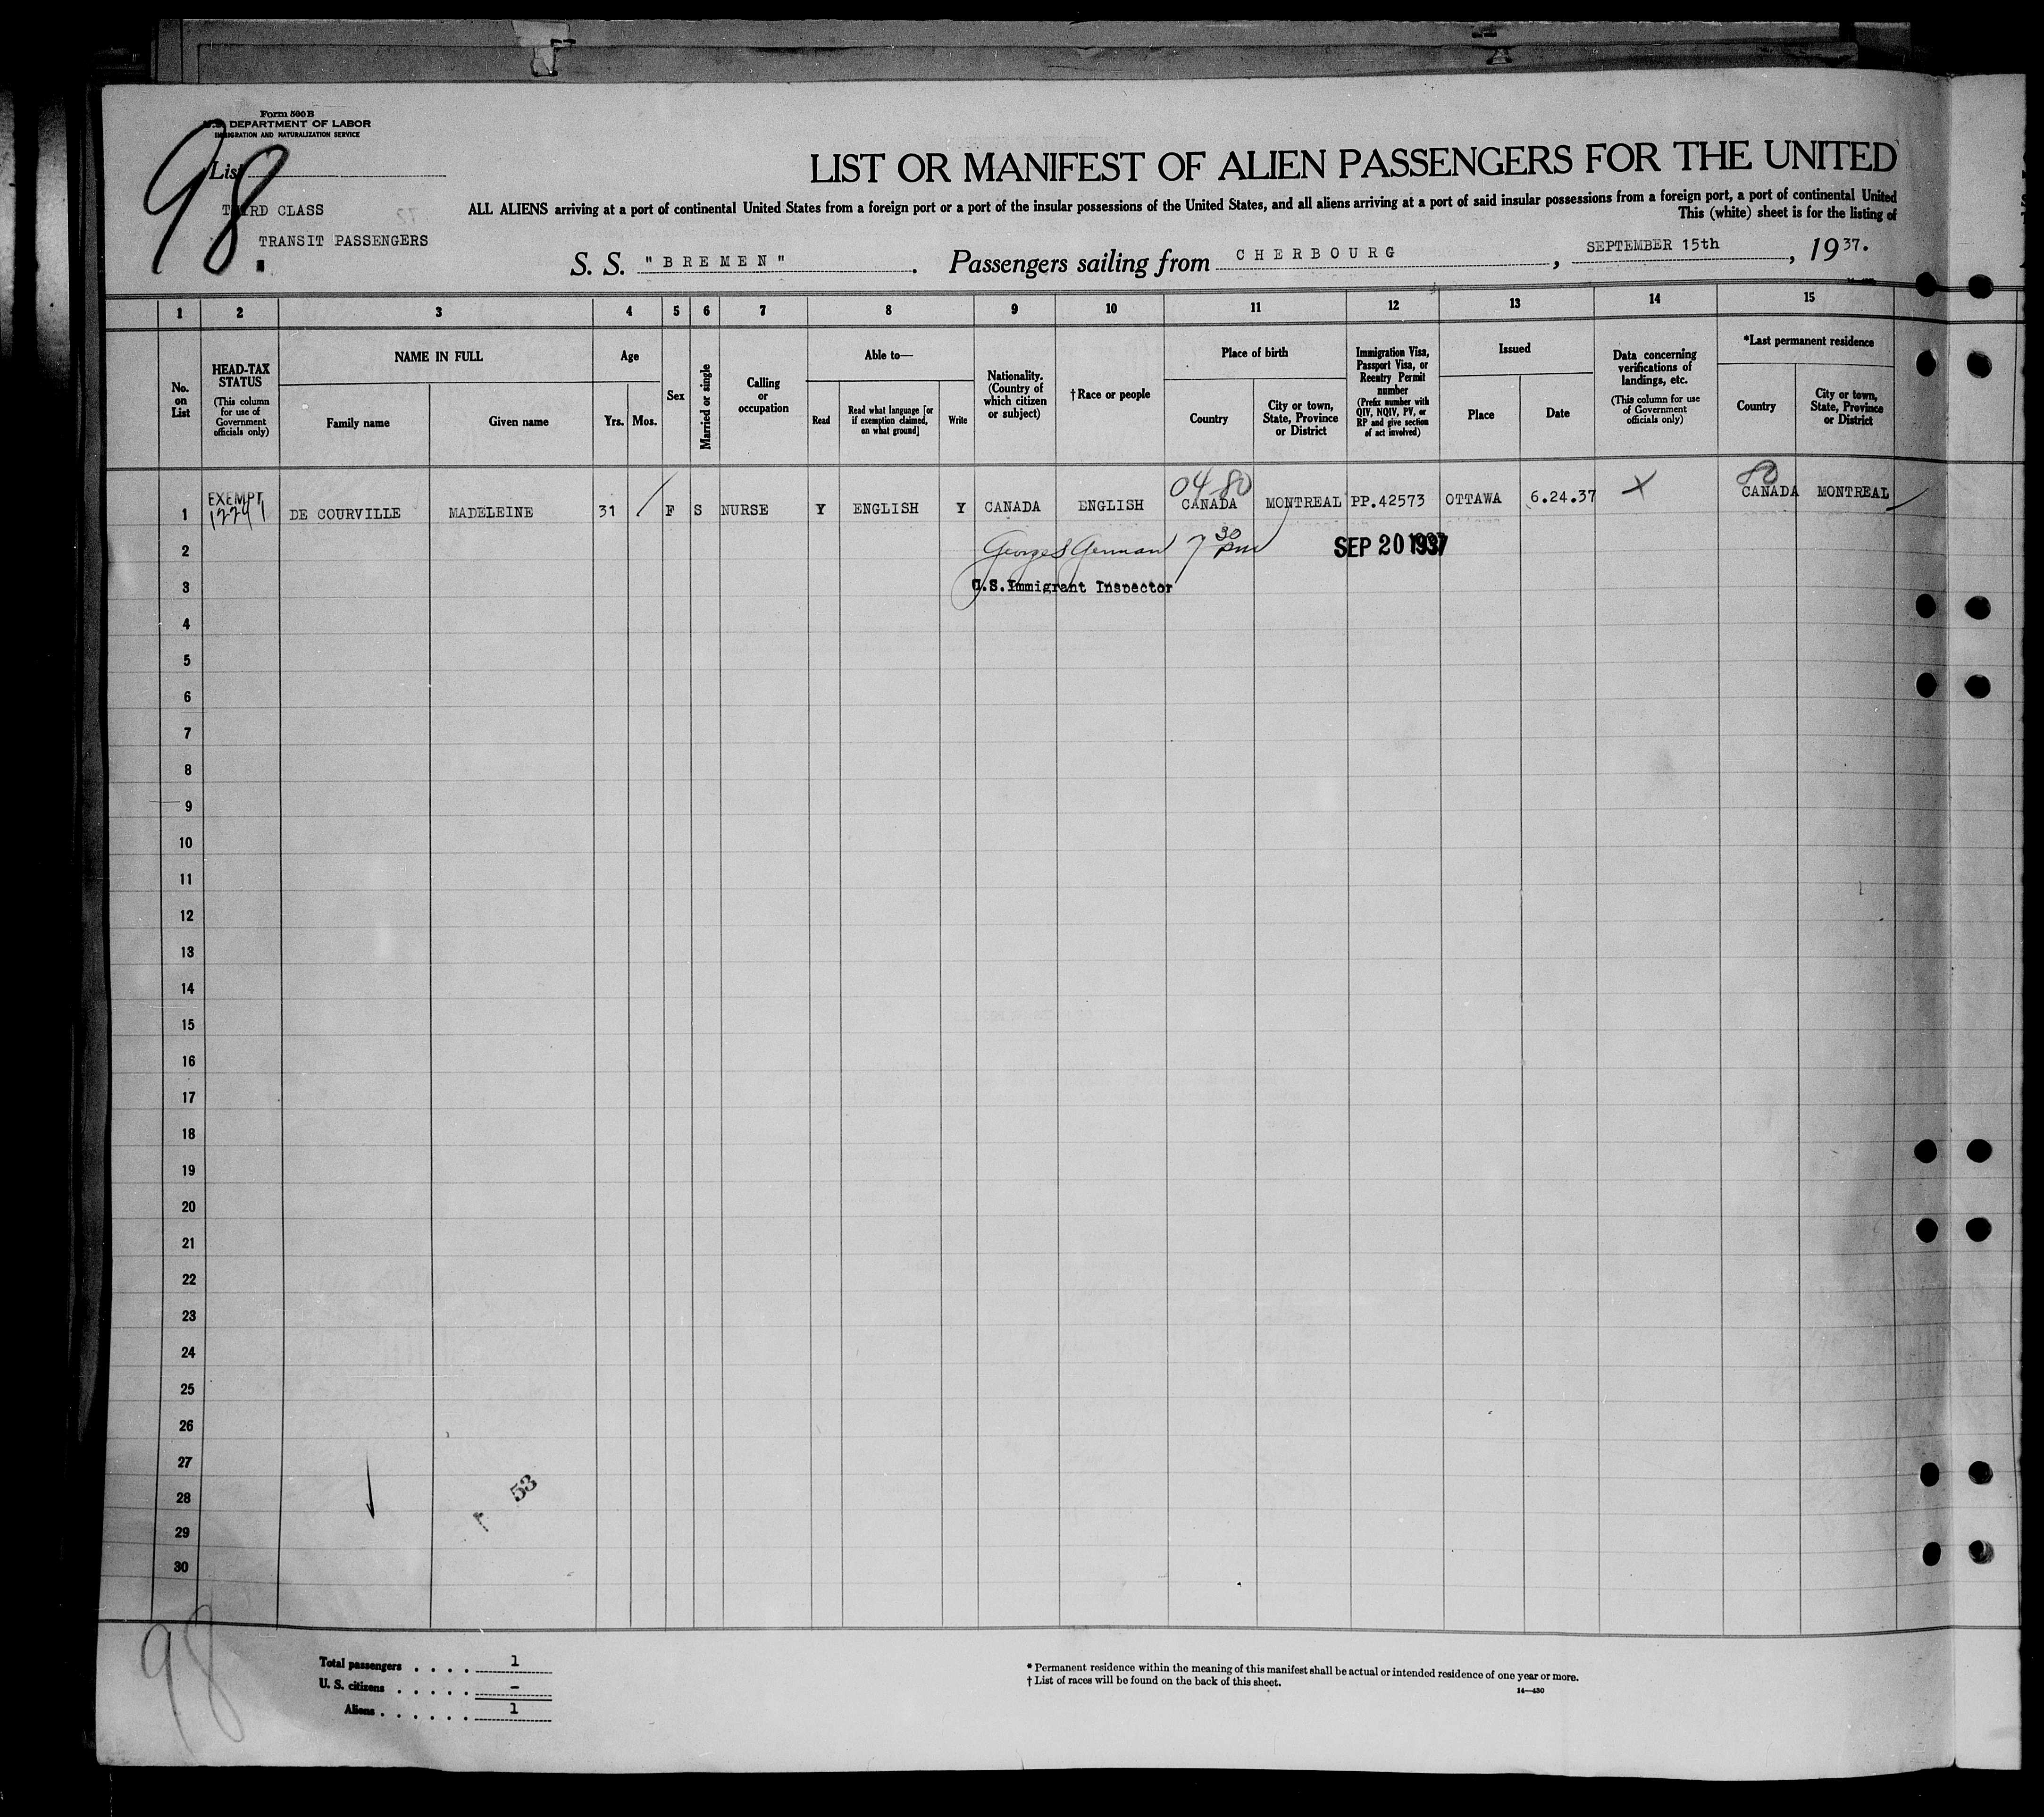 Form 500 B
U.S. DEPARTMENT OF LABOR
IMMIGRATION AND NATURALIZATION SERVICE
98
List
THIRD CLASS
TRANSIT PASSENGERS
LIST OR MANIFEST OF ALIEN PASSENGERS FOR THE UNITED
ALL ALIENS arriving at a port of continental United States from a foreign port or a port of the insular possessions of the United States, and all aliens arriving at a port of said insular possessions from a foreign port, a port of continental United
This (white) sheet is for the listing of
S. S. "BREMEN". Passengers sailing from CHERBOURG, SEPTEMBER 15th, 1937.
1 2 3 4 5 6 7 8 9 10 11 12 13 14 15
No. on List
HEAD-TAX STATUS (This column for use of Government officials only)
NAME IN FULL
Family name
Given name
Age
Yrs.
Mos.
Sex
Married or single
Calling or occupation
Able to—
Read
Read what language [or if exemption claimed, on what ground]
Write
Nationality. (Country of which citizen or subject)
†Race or people
Place of birth
Country
City or town, State, Province or District
Immigration Visa, Passport Visa, or Reentry Permit number (Prefix number with QIV, NQIV, PV, or RP and give section of act involved)
Issued
Place
Date
Data concerning verifications of landings, etc. (This column for use of Government officials only)
*Last permanent residence
Country
City or town, State, Province or District
EXEMPT 04-80 80
1 DE COURVILLE MADELEINE 31 F S NURSE Y ENGLISH Y CANADA ENGLISH CANADA MONTREAL PP.42573 OTTAWA 6.24.37 X CANADA MONTREAL
2 German 7 30 pm SEP 20 1937
3 U.S. Immigrant Inspector
4
5
6
7
8
9
10
11
12
13
14
15
16
17
18
19
20
21
22
23
24
25
26
27
28
29
30
53
98
Total passengers . . . . 1
U. S. citizens . . . . . –
Aliens . . . . . . 1
* Permanent residence within the meaning of this manifest shall be actual or intended residence of one year or more.
† List of races will be found on the back of this sheet.
14—430